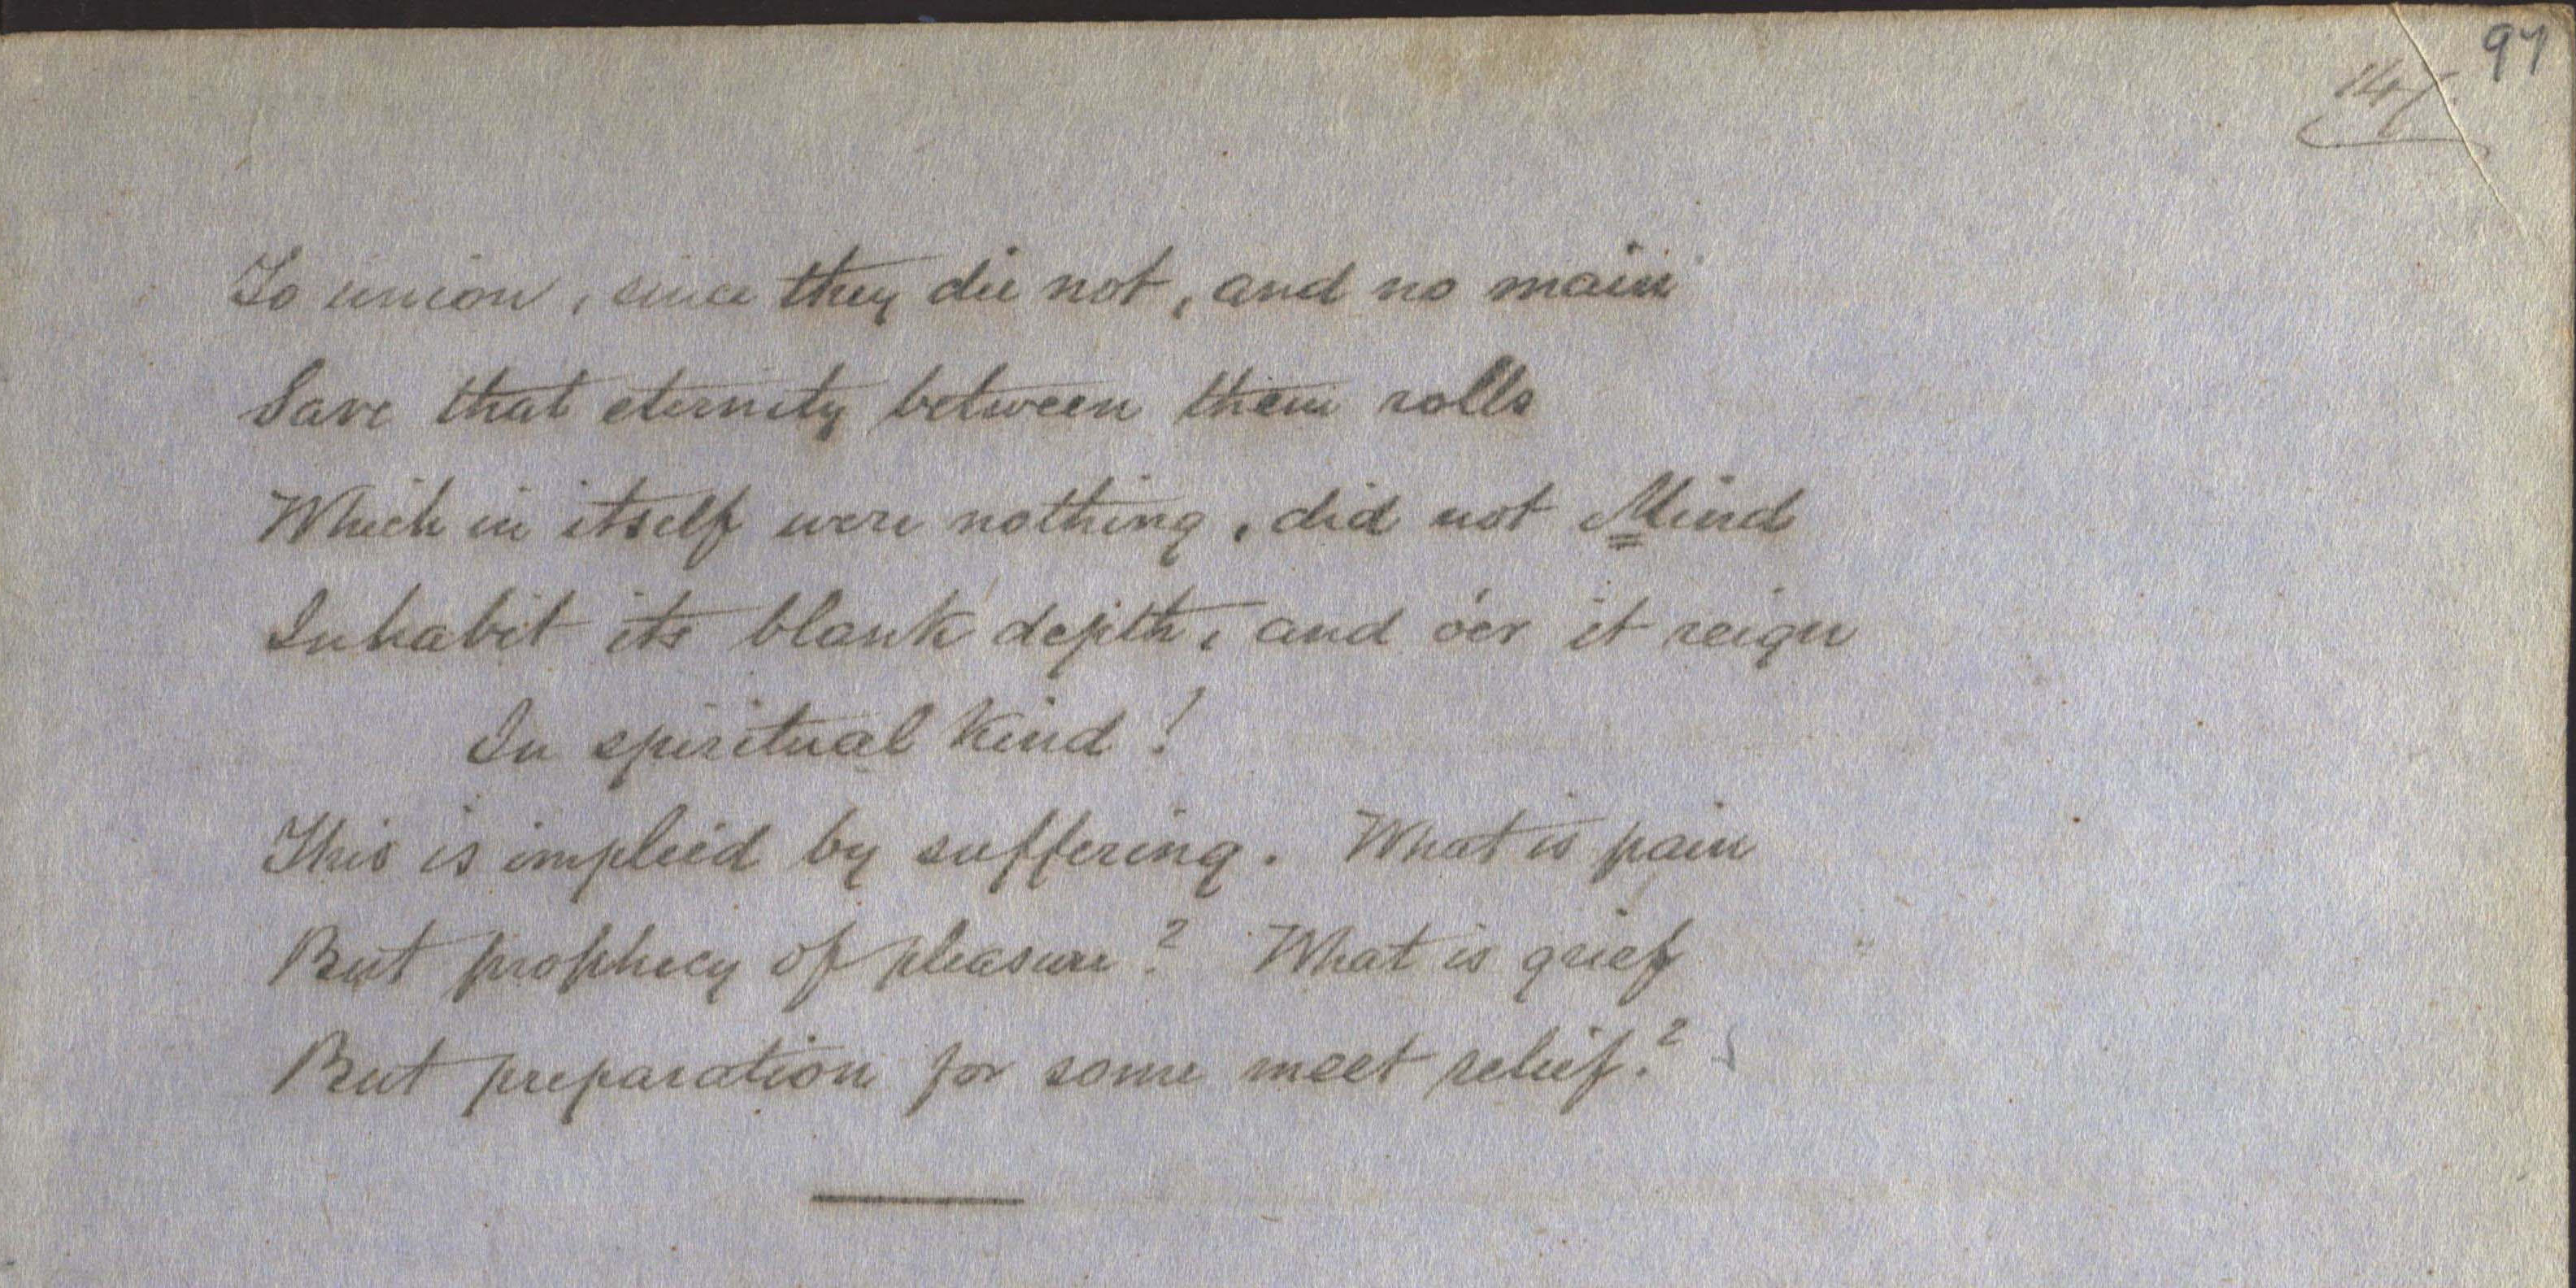 97
To union, since they die not, and no main
Save that eternity between them rolls
Which in itself were nothing, did not Mind
Inhabit its blank depth, and o'er it reign
In spiritual kind!
This is implied by suffering. What is pain
But prophecy of pleasure? What is grief
But preparation for some meet relief.?